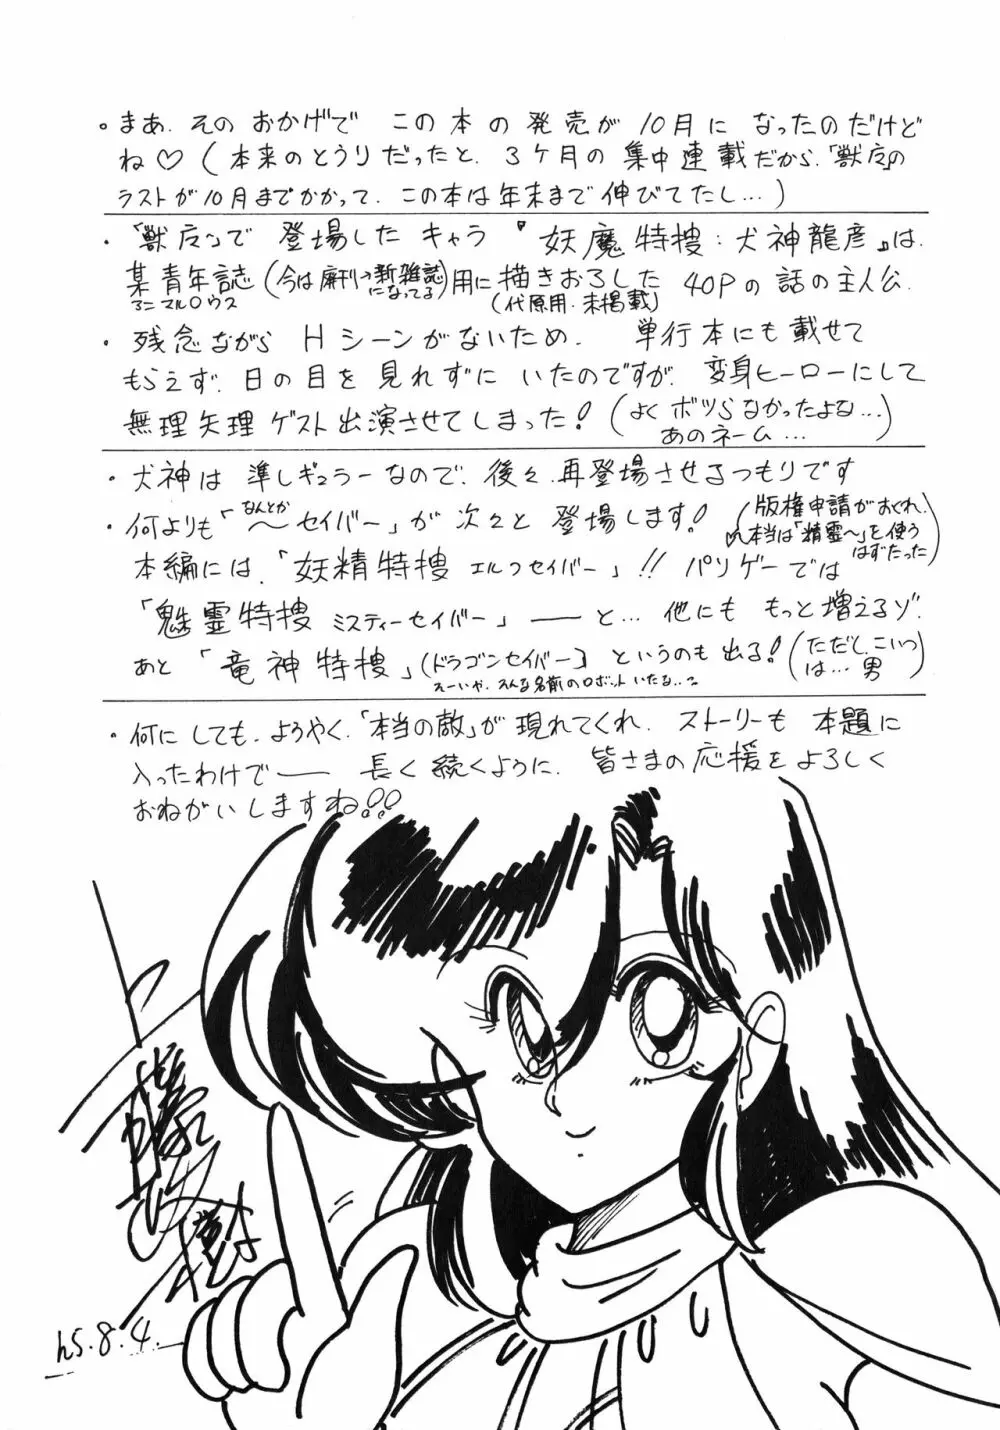 。まあ、そのおかげで この本の発売が 10月に なったのだけど
ね♡(本来のとうりだったと、3ケ月の集中連載だから、「獣戸」の
ラストが10月までかかって、この本は年末まで伸びてたし…)
・「獣戸」で 登場したキャラ『妖魔特捜:犬神龍彦』は、
某青年誌(今は廃刊→新雑誌になってる)用に描きおろした 40Pの話の主人公.
アニマルハウス
(代原用・未掲載)
・残念ながら Hシーンがないため、 単行本にも載せて
もらえず、日の目を見れずに いたのですが、変身ヒーローにして
無理矢理ゲスト出演させてしまった!(よくボツらなかったよな…
あのネーム…)
・犬神は 準レギュラーなので、後々、再登場させるつもりです
・何よりも「〜セイバー」が 次々と 登場します!
なんとか
(版権申請がおくれ、
本当は「精霊〜」を使う
はずだった)
本編には、「妖精特捜 エルフセイバー」!! パソゲーでは
「魅霊特捜 ミスティーセイバー」——と… 他にも もっと増えるゾ.
あと 「竜神特捜」(ドラゴンセイバー) というのも出る!(ただし、こいつ
は… 男)
えーいや、そんな名前のロボットいたな..?
・何にしても、ようやく、「本当の敵」が現れてくれ、ストーリーも 本題に
入ったわけで—— 長く続くように、皆さまの応援をよろしく
おねがいしますね!!
上藤政樹
h5.8.4.